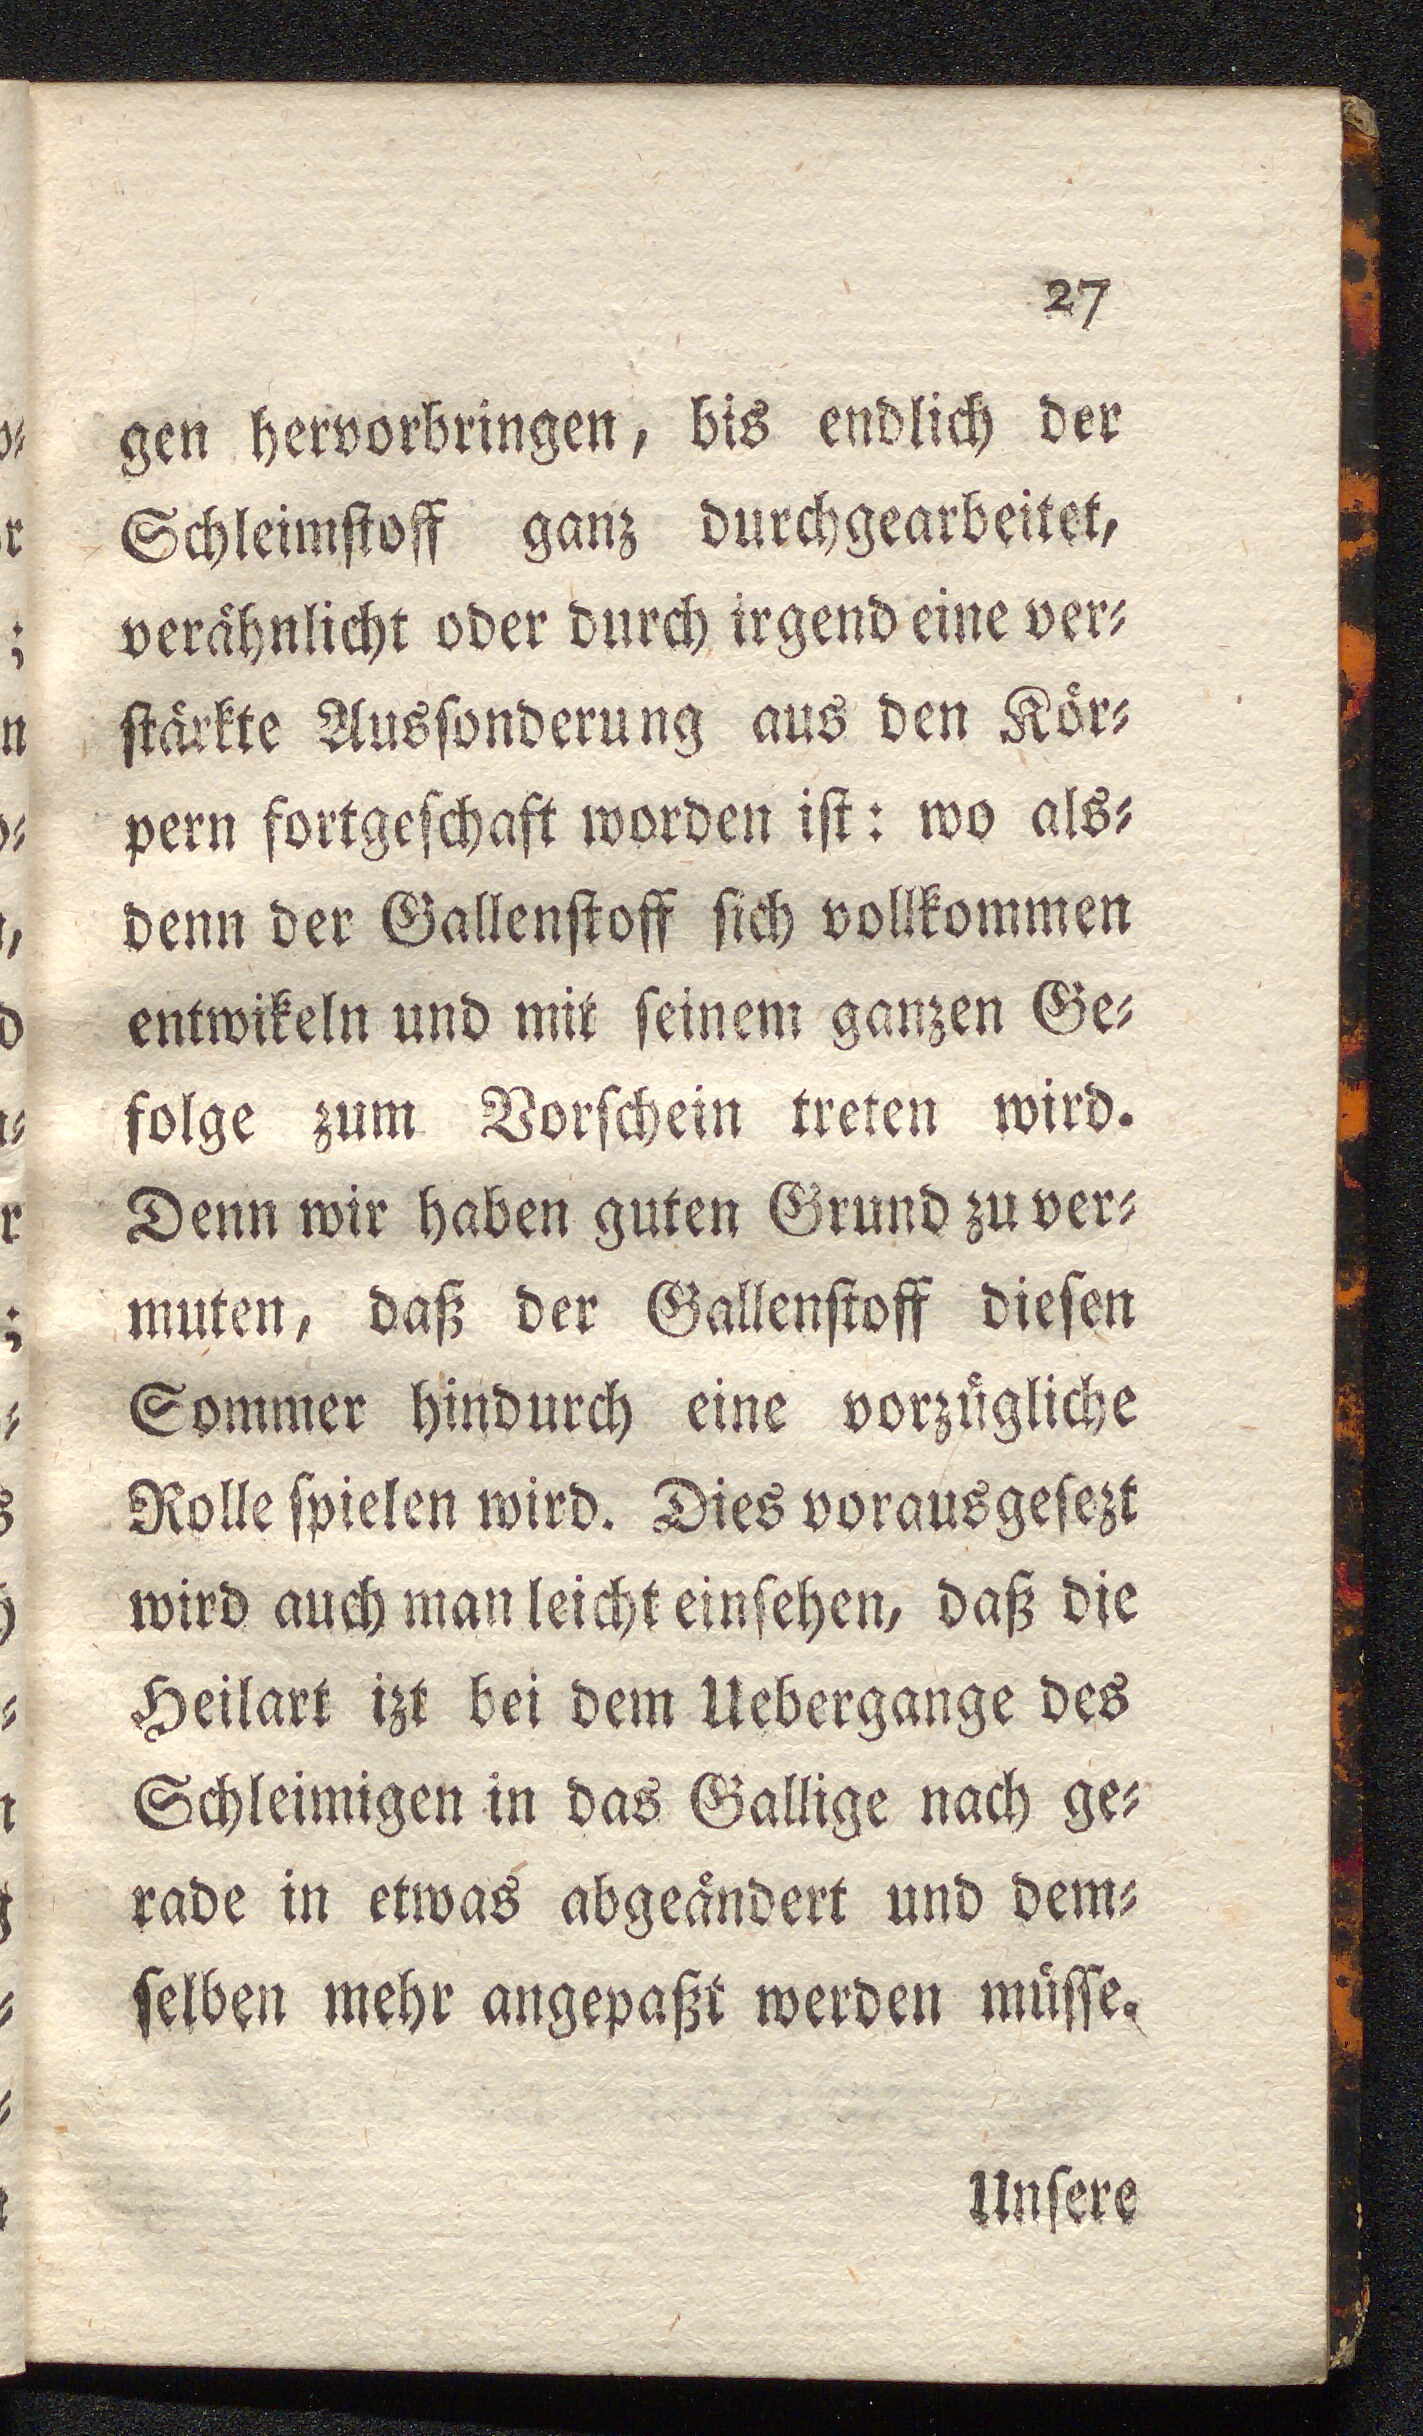 27
gen hervorbringen, bis endlich der
Schleimſtoff ganz durchgearbeitet,
veraͤhnlicht oder durch irgend eine ver⸗
ſtaͤrkte Ausſonderung aus den Koͤr⸗
pern fortgeſchaft worden iſt: wo als⸗
denn der Gallenſtoff ſich vollkommen
entwikeln und mit ſeinem ganzen Ge⸗
folge zum Vorſchein treten wird.
Denn wir haben guten Grund zu ver⸗
muten, daß der Gallenſtoff dieſen
Sommer hindurch eine vorzuͤgliche
Rolle ſpielen wird. Dies vorausgeſezt
wird auch man leicht einſehen, daß die
Heilart izt bei dem Uebergange des
Schleimigen in das Gallige nach ge⸗
rade in etwas abgeaͤndert und dem⸗
ſelben mehr angepaßt werden muͤſſe.
Unſere